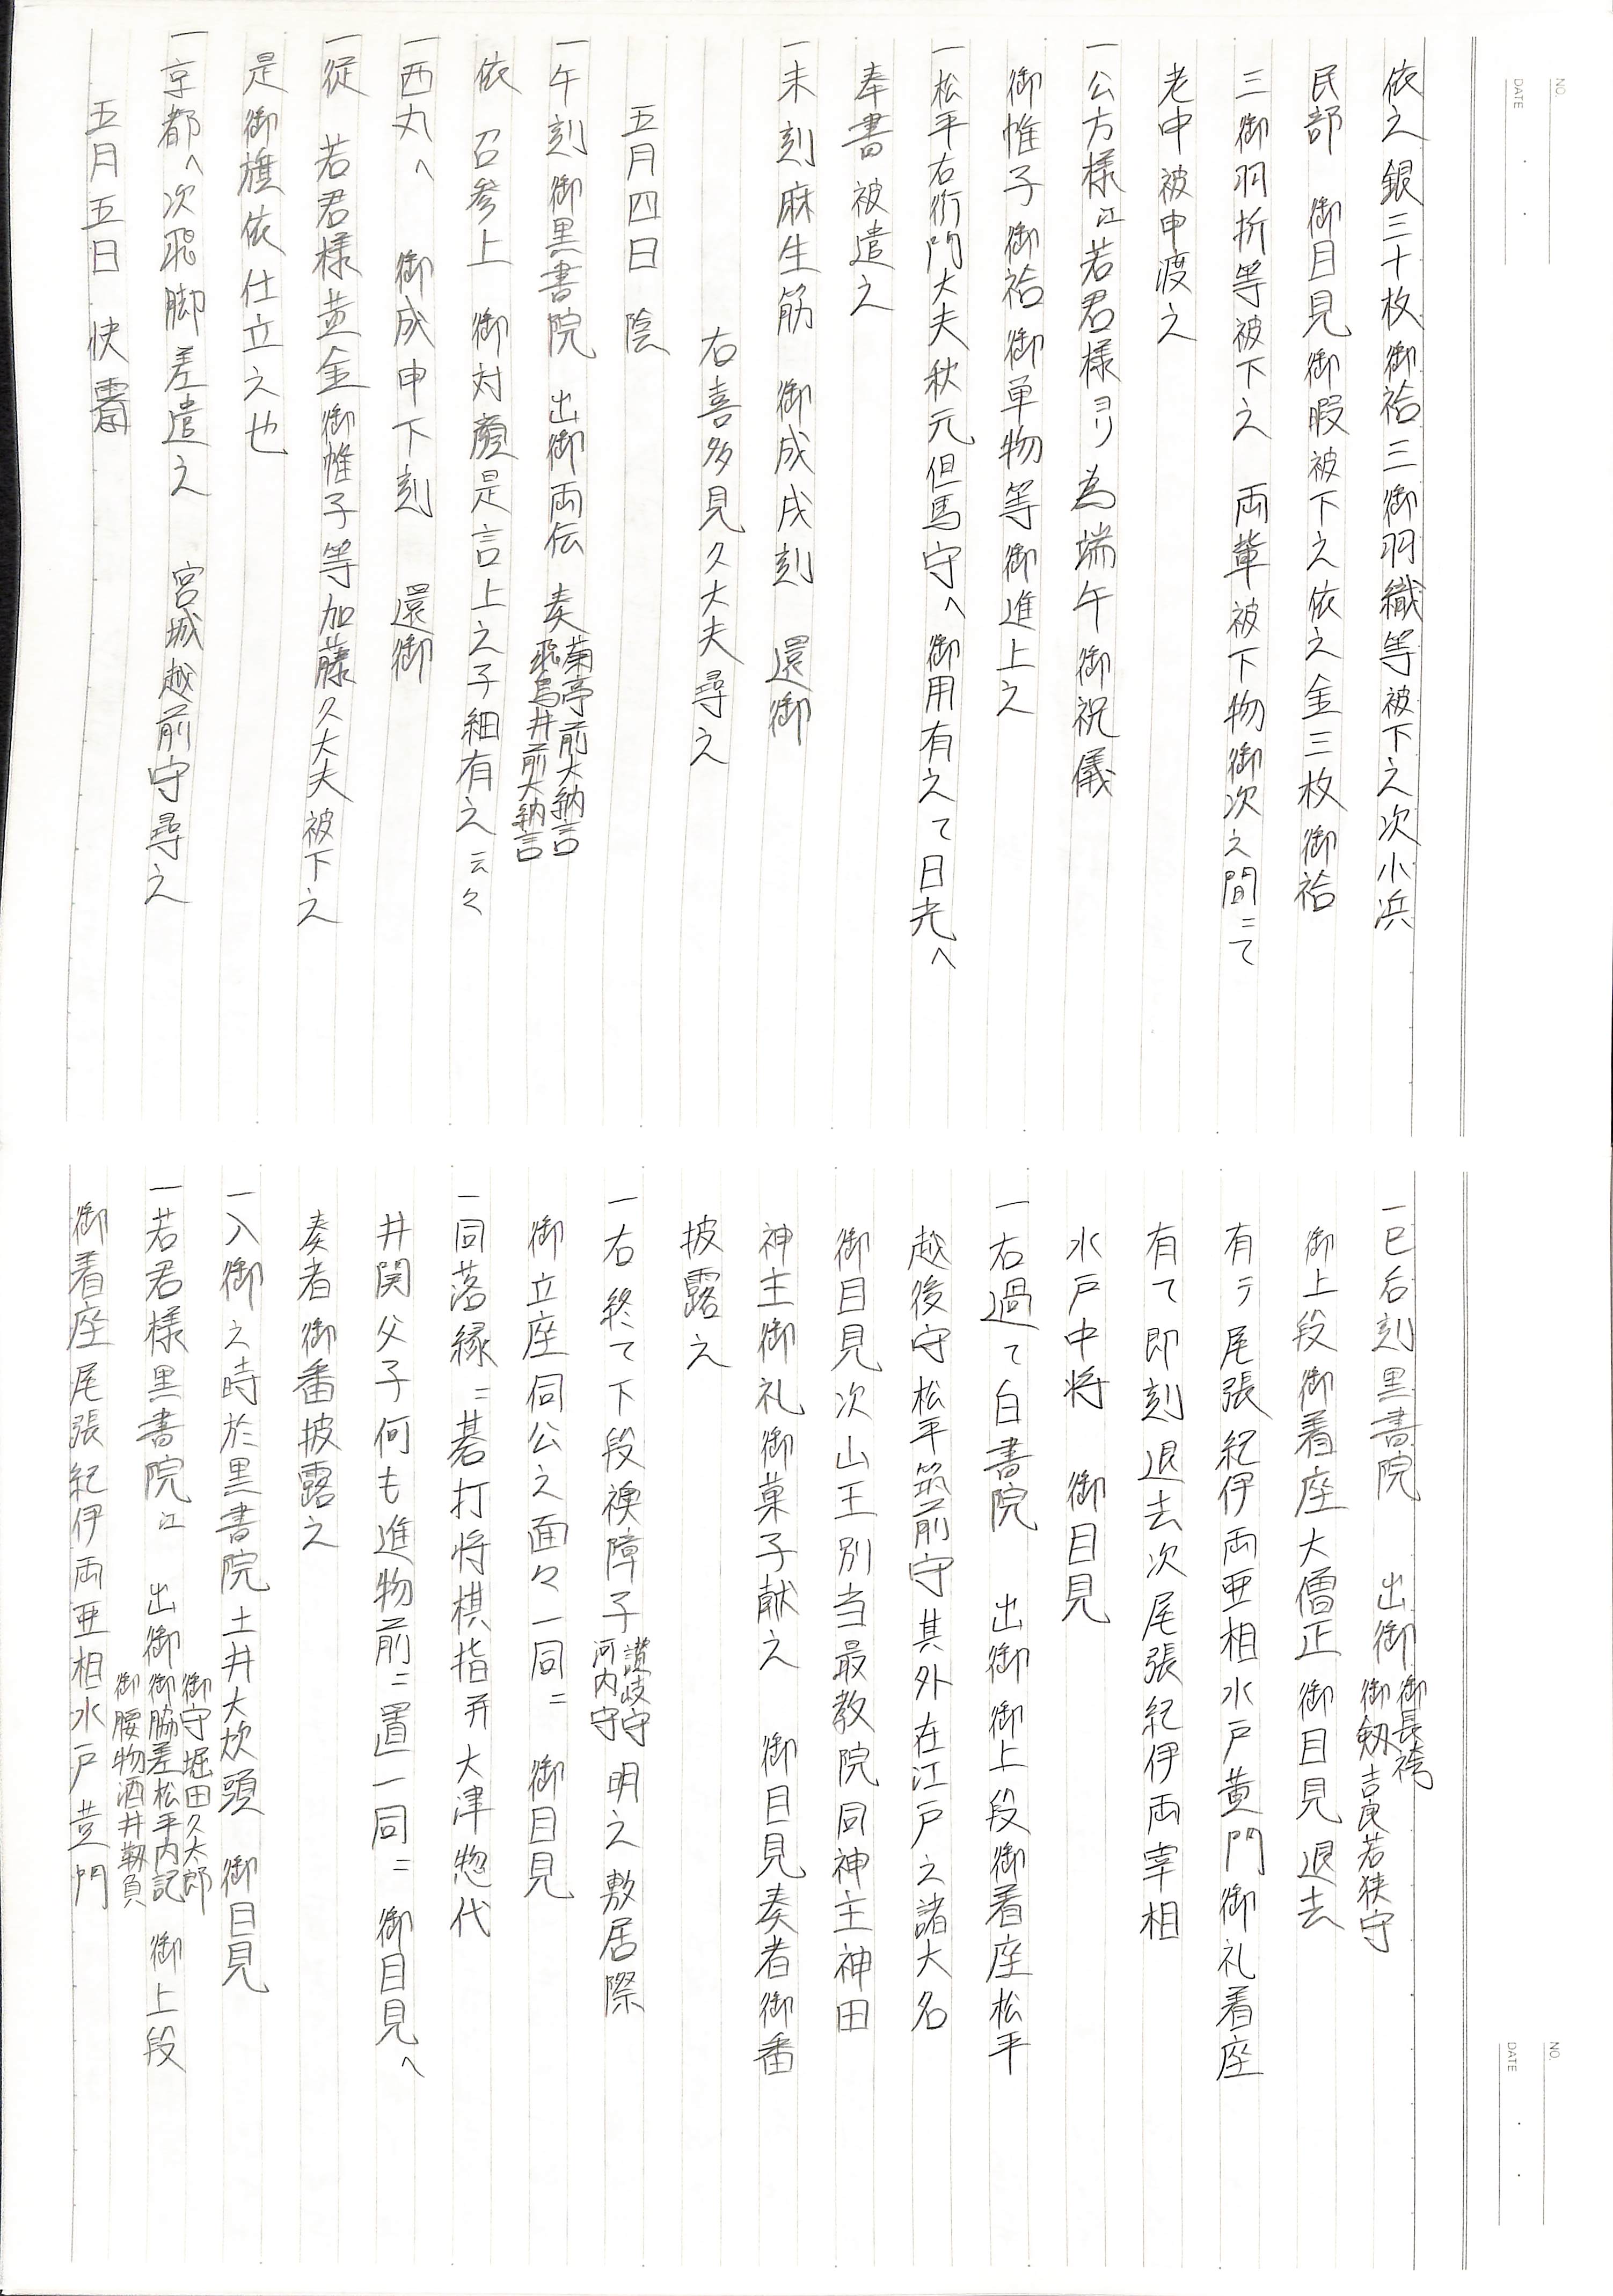 NO.
DATE
依之銀三十枚御袷三御羽織等被下之次小浜
民部　御目見御暇被下之依之金三枚御袷
三御羽折等被下之　両輩被下物御次之間ニて
老中被申渡之
一公方様江若君様ヨリ為端午御祝儀
御帷子御袷御単物等御進上之
一松平右衛門大夫秋元但馬守へ御用有之て日光へ
奉書被遣之
一未刻麻生筋　御成戌刻　還御
右喜多見久大夫尋之
五月四日　陰
一午刻御黒書院　出御両伝　奏
菊亭前大納言
飛鳥井前大納言
依　召参上　御対顔是言上之子細有之云々
一西丸へ　御成申下刻　還御
一従　若君様黄金御帷子等加藤久大夫被下之
是御旗依仕立之也
一京都へ次飛脚差遣之　宮城越前守尋之
五月五日　快霽
NO.
DATE
一巳后刻黒書院　出御
御長袴
御剱吉良若狭守
御上段御着座大僧正　御目見　退去
有テ尾張紀伊両亜相水戸黄門御礼着座
有て即刻退去次尾張紀伊両宰相
水戸中将　御目見
一右過て白書院　出御御上段御着座松平
越後守松平筑前守其外在江戸之諸大名
御目見次山王別当最教院同神主神田
神主御礼御菓子献之　御目見奏者御番
披露之
一右終て下段襖障子
讃岐守
河内守
明之敷居際
御立座伺公之面々一同ニ　御目見
一同落縁ニ碁打将棋指并大津惣代
井関父子何も進物前ニ置一同ニ　御目見へ
奏者御番披露之
一入御之時於黒書院土井大炊頭　御目見
一若君様黒書院江　出御
御守堀田久太郎
御脇差松平内記
御腰物酒井靱負
御上段
御着座尾張紀伊両亜相水戸黄門